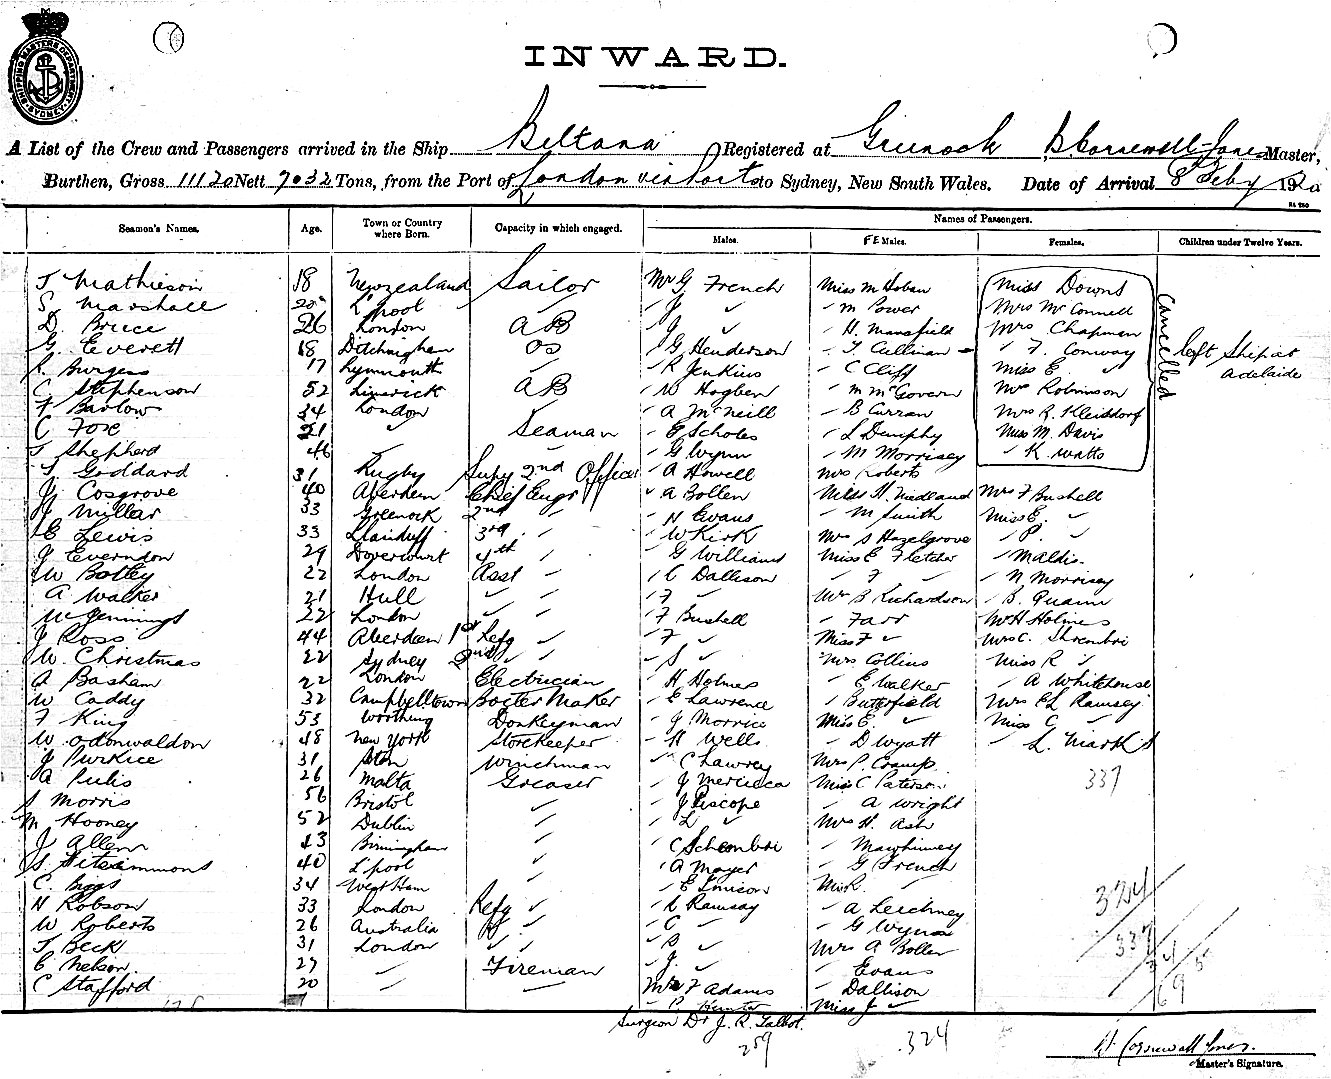 SHIPPING MASTERS DEPARTMENT SYDNEY
INWARD.
A List of the Crew and Passengers arrived in the Ship Beltana Registered at Greenock Master,
Burthen, Gross 11120 Nett 7032 Tons, from the Port of London via Ports to Sydney, New South Wales. Date of Arrival 8 Feby 1920
Seamen's Names. Age. Town or Country where Born. Capacity in which engaged. Names of Passengers.
Males. FEMales. Females. Children under Twelve Years.
J Mathieson 18 Newzealand Sailor Mr G French Miss M Hoban Miss Downs
S. Marshall 20 L'pool " " J " " M Power Mrs McConnell
D. Bruce 26 London AB " J " " H. Mansfield Mrs Chapman
G. Everett 18 Ditchingham OS " G Henderson " T Cullinan " F. Conway Cancelled left Ship at
Burgess 17 Lynmouth " " R Jenkins " C Cliff Miss E. " Adelaide
C Stephenson 52 Limerick AB " W Hogben " M McGovern Mr Robinson
F Barlow 34 London " A McNeill " B Curran Mrs R.
C Foxe 21 " Seaman " E Scholes " L Dunphy Miss M. Davis
Shepherd 46 " G Wynn " M Morrisey " K. Watts
Goddard 31 Rugby Supy 2nd Officer " A Howell Mrs Roberts
J Cosgrove 40 Aberdeen Chief Engr " A Bollen Miss H. Medland Mrs F Bushell
J Millar 33 Greenock 2nd " " H Evans " M Smith Miss E. "
E Lewis 33 Llandaff 3rd " " W Kirk Mrs S Hazelgrove " P. "
J Everndon 29 Dovercourt 4th " " G Williams Miss E Fletcher " Maldis.
W Botley 22 London Asst " " C Dallison " F " " N Morrisey
A Walker 21 Hull " " " F " Mrs B Richardson " B. Quann
W Jennings 22 London " " " F Bushell " Farr Mr H Holmes
J Ross 44 Aberdeen 1st Refg " " F " Miss F " Mrs C.
W. Christmas 22 Sydney 2nd " " " S " Mrs Collins Miss R "
A Basham 22 London Electrician " H Holmes " E Walker " A Whitehouse
W Caddy 32 Campbelltown Boiler Maker " E Lawrence " Butterfield Mrs E L Ramsey
F King 53 Worthing Donkeyman " G Morrice Miss E. " Miss C "
W. Odonwaldon 48 New York Storekeeper " H Wells " D Wyatt " L. Marks
J Purkice 31 Winchman " C Lawrey Mrs P. Cramp
A Pulis 26 Malta Greaser " J Mercieca Miss C Paterson 337
S Morris 56 Bristol " " J Piscope " A Wright
M Hooney 52 Dublin " " L " Mrs H. Ash
J Allem 43 Birmingham " " C Schembri " Mawhinney
S. Fitzsimmons 40 L'pool " " A Mayer " G French
C. Biggs 34 West Ham " " E Innison Miss R. "
H Robson 33 London Refg " " R Ramsay " A Lerchmey 324
W Roberts 26 Australia " " C " " G Wynn
T. Beck 31 London " " " B " Mrs A Bollen 337
C Nelson 27 " Fireman " J " " Evans 34 5
C Stafford 20 " " Mr F Adams " Dallison 69
" P Hunter Miss J "
Surgeon Dr J. R. Talbot.
259 324
H. Cornewall Jones.
Master's Signature.